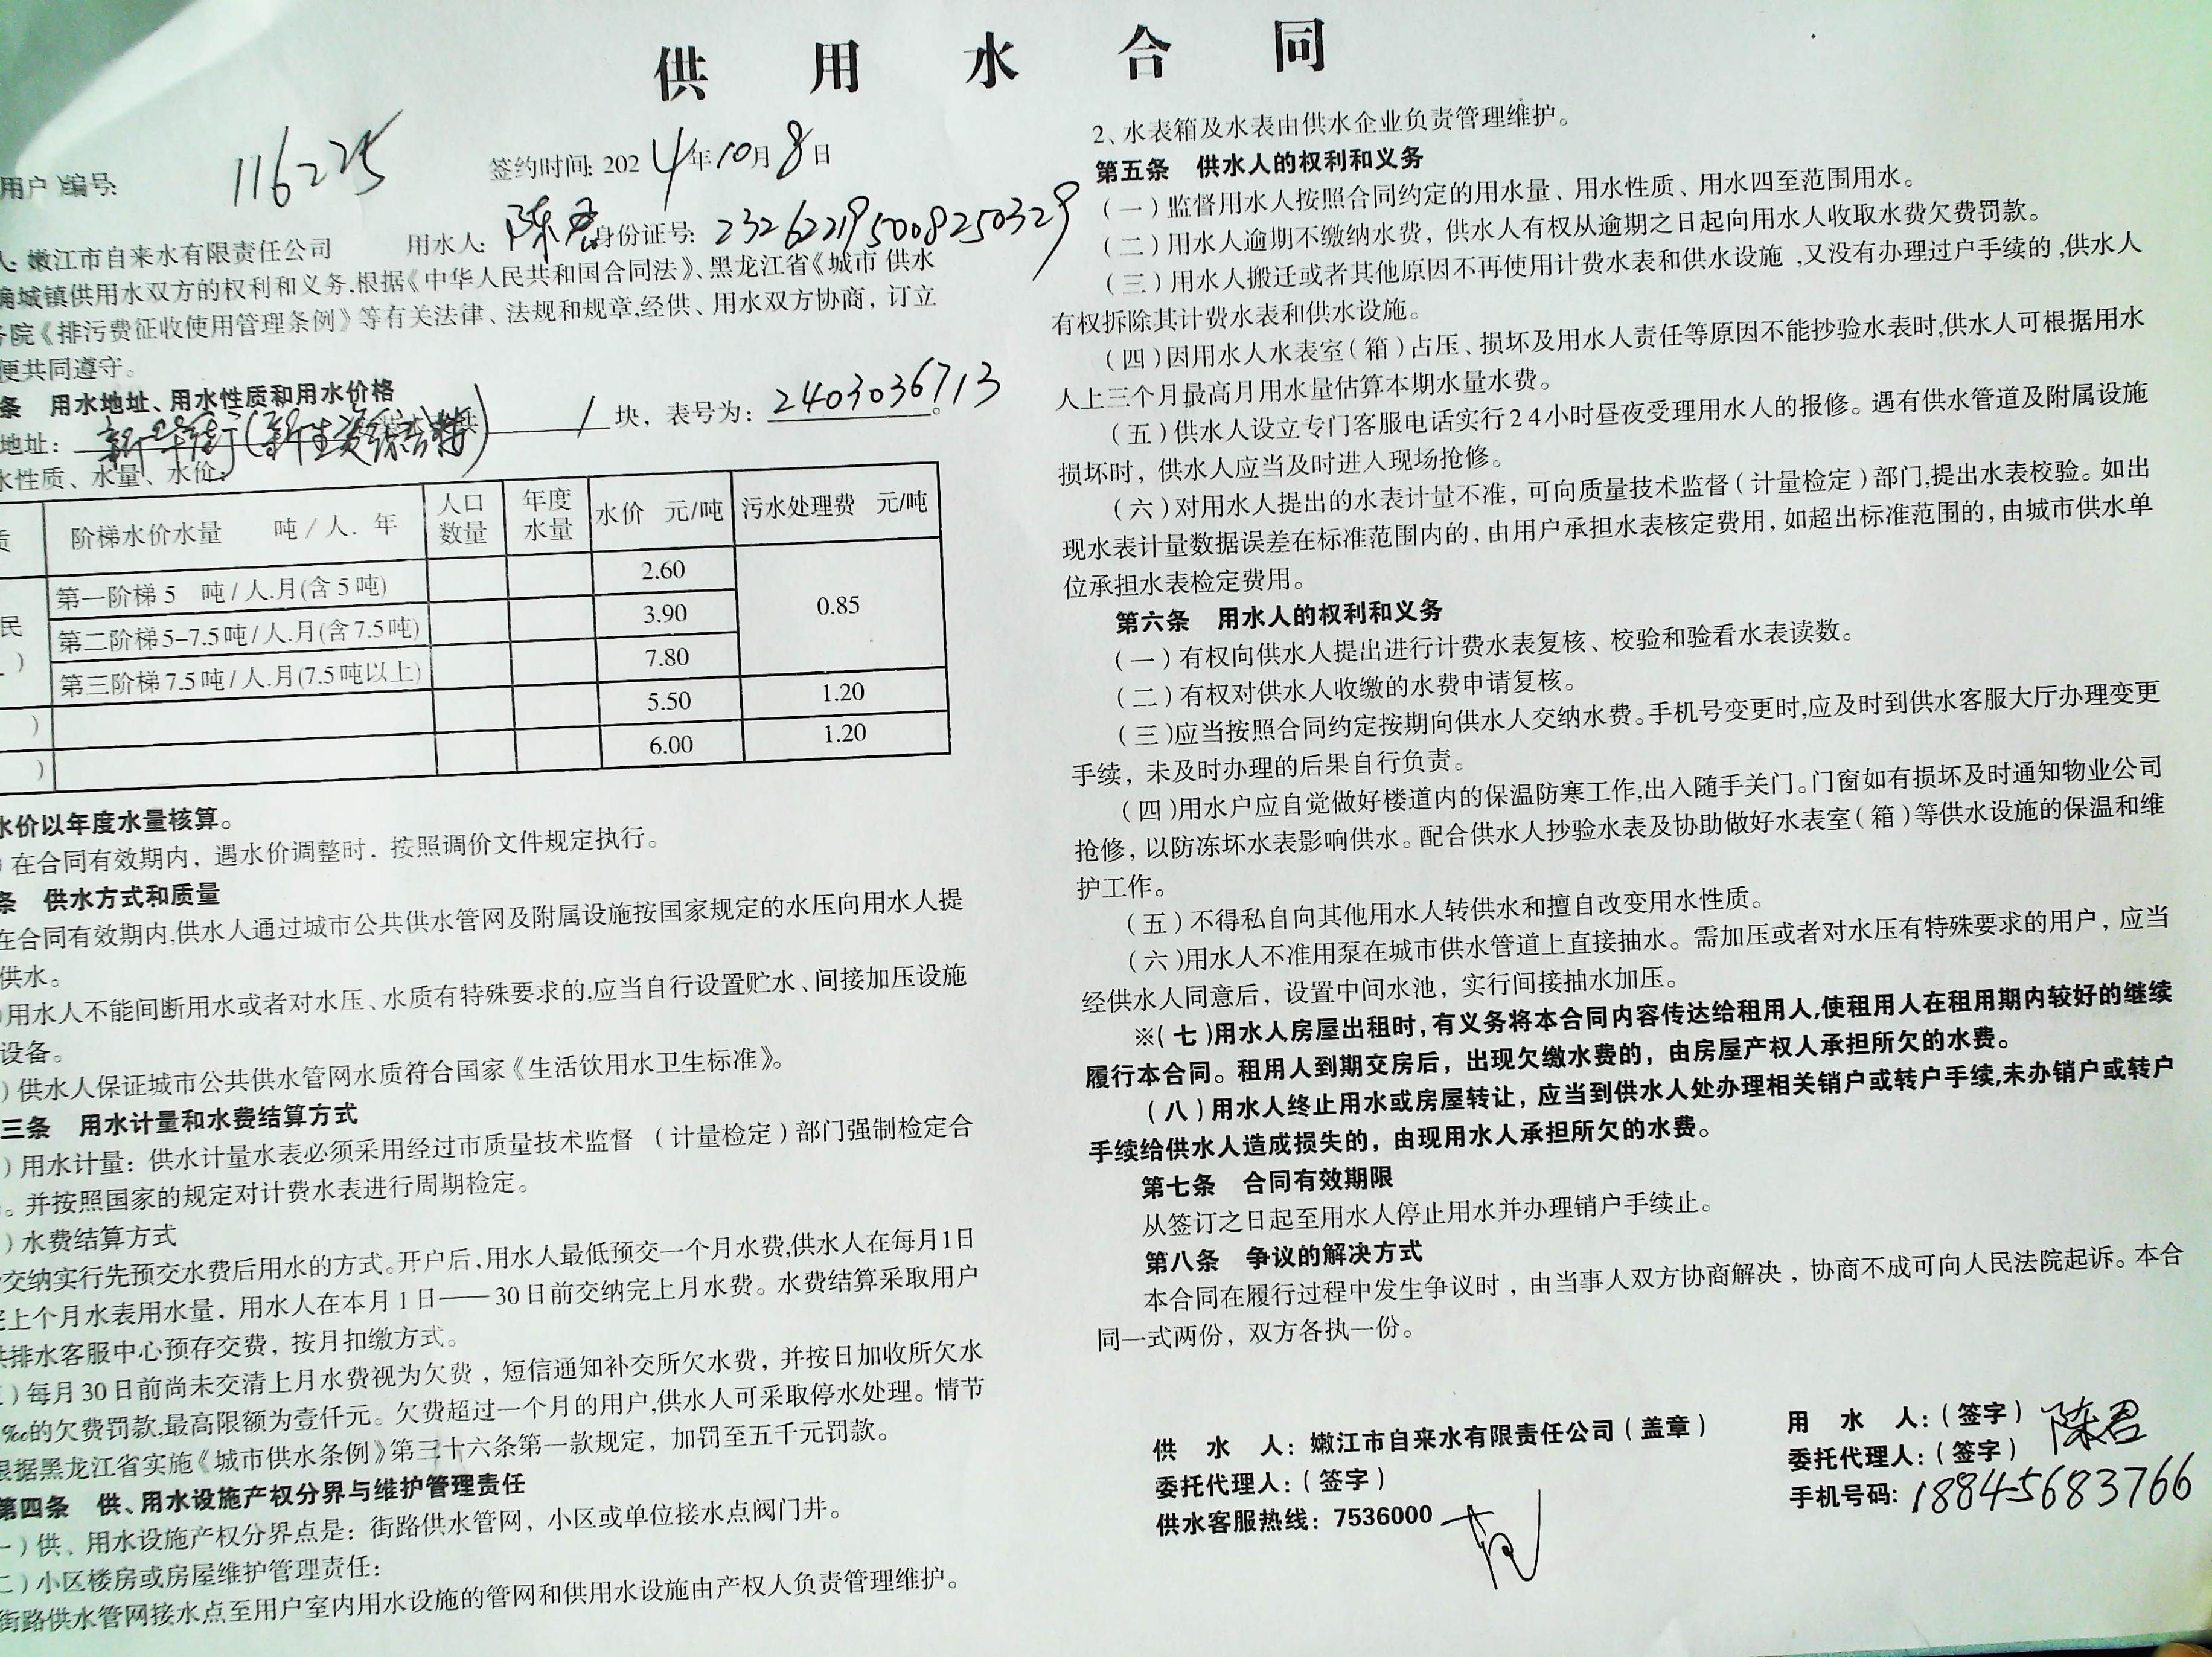 供 用 水 合 同
用户)编号: 116225 签约时间: 2024年10月8日
人: 嫩江市自来水有限责任公司 用水人: 陈君 身份证号: 232622195008250329
确城镇供用水双方的权利和义务,根据《中华人民共和国合同法》、黑龙江省《城市 供水
务院《排污费征收使用管理条例》等有关法律、法规和规章,经供、用水双方协商，订立
便共同遵守。
条 用水地址、用水性质和用水价格
地址: 新华街(新生资 1 块，表号为: 2403036713。
水性质、水量、水价:
质 阶梯水价水量 吨/人. 年 人口数量 年度水量 水价 元/吨 污水处理费 元/吨
民 第一阶梯 5 吨/人.月(含 5 吨) 2.60 0.85
第二阶梯 5-7.5吨/人.月(含 7.5吨) 3.90
第三阶梯 7.5吨/人.月(7.5吨以上) 7.80
) 5.50 1.20
) 6.00 1.20
水价以年度水量核算。
)在合同有效期内，遇水价调整时．按照调价文件规定执行。
条 供水方式和质量
在合同有效期内,供水人通过城市公共供水管网及附属设施按国家规定的水压向用水人提
供水。
)用水人不能间断用水或者对水压、水质有特殊要求的,应当自行设置贮水、间接加压设施
设备。
)供水人保证城市公共供水管网水质符合国家《生活饮用水卫生标准》。
三条 用水计量和水费结算方式
)用水计量：供水计量水表必须采用经过市质量技术监督 (计量检定)部门强制检定合
。并按照国家的规定对计费水表进行周期检定。
)水费结算方式
交纳实行先预交水费后用水的方式。开户后,用水人最低预交一个月水费,供水人在每月1日
完上个月水表用水量，用水人在本月 1 日——30日前交纳完上月水费。水费结算采取用户
供排水客服中心预存交费，按月扣缴方式。
)每月30日前尚未交清上月水费视为欠费，短信通知补交所欠水费，并按日加收所欠水
‰的欠费罚款,最高限额为壹仟元。欠费超过一个月的用户,供水人可采取停水处理。情节
根据黑龙江省实施《城市供水条例》第三十六条第一款规定，加罚至五千元罚款。
第四条 供、用水设施产权分界与维护管理责任
一)供、用水设施产权分界点是：街路供水管网，小区或单位接水点阀门井。
二)小区楼房或房屋维护管理责任:
街路供水管网接水点至用户室内用水设施的管网和供用水设施由产权人负责管理维护。
2、水表箱及水表由供水企业负责管理维护。
第五条 供水人的权利和义务
(一)监督用水人按照合同约定的用水量、用水性质、用水四至范围用水。
(二)用水人逾期不缴纳水费，供水人有权从逾期之日起向用水人收取水费欠费罚款。
(三)用水人搬迁或者其他原因不再使用计费水表和供水设施,又没有办理过户手续的,供水人
有权拆除其计费水表和供水设施。
(四)因用水人水表室(箱)占压、损坏及用水人责任等原因不能抄验水表时,供水人可根据用水
人上三个月最高月用水量估算本期水量水费。
(五)供水人设立专门客服电话实行24小时昼夜受理用水人的报修。遇有供水管道及附属设施
损坏时，供水人应当及时进入现场抢修。
(六)对用水人提出的水表计量不准，可向质量技术监督(计量检定)部门,提出水表校验。如出
现水表计量数据误差在标准范围内的，由用户承担水表核定费用，如超出标准范围的，由城市供水单
位承担水表检定费用。
第六条 用水人的权利和义务
(一)有权向供水人提出进行计费水表复核、校验和验看水表读数。
(二)有权对供水人收缴的水费申请复核。
(三)应当按照合同约定按期向供水人交纳水费。手机号变更时,应及时到供水客服大厅办理变更
手续，未及时办理的后果自行负责。
(四)用水户应自觉做好楼道内的保温防寒工作,出入随手关门。门窗如有损坏及时通知物业公司
抢修，以防冻坏水表影响供水。配合供水人抄验水表及协助做好水表室(箱)等供水设施的保温和维
护工作。
(五)不得私自向其他用水人转供水和擅自改变用水性质。
(六)用水人不准用泵在城市供水管道上直接抽水。需加压或者对水压有特殊要求的用户，应当
经供水人同意后，设置中间水池，实行间接抽水加压。
※(七)用水人房屋出租时,有义务将本合同内容传达给租用人,使租用人在租用期内较好的继续
履行本合同。租用人到期交房后，出现欠缴水费的，由房屋产权人承担所欠的水费。
(八)用水人终止用水或房屋转让，应当到供水人处办理相关销户或转户手续,未办销户或转户
手续给供水人造成损失的，由现用水人承担所欠的水费。
第七条 合同有效期限
从签订之日起至用水人停止用水并办理销户手续止。
第八条 争议的解决方式
本合同在履行过程中发生争议时，由当事人双方协商解决，协商不成可向人民法院起诉。本合
同一式两份，双方各执一份。
供 水 人：嫩江市自来水有限责任公司(盖章)
委托代理人：(签字)
供水客服热线：7536000
用 水 人：(签字) 陈君
委托代理人：(签字)
手机号码: 18845683766